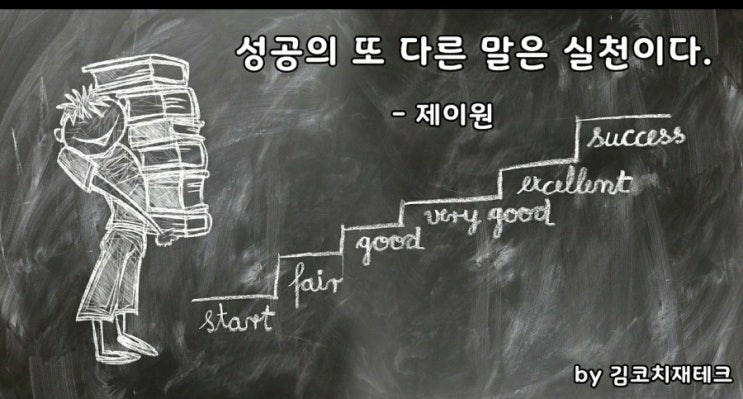 성공의 또 다른 말은 실천이다.
- 제이원
success
excellent
very good
good
fair
start
by 김코치재테크